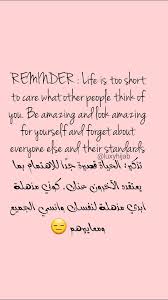 REMINDER : Life is too short
to care what other people think of
you. Be amazing and look amazing
for yourself and forget about
everyone else and their standards
@luxyhijab
تذكير: الحياة قصيرة جدًا للاهتمام بما
يعتقده الآخرون عنك. كوني مذهلة
ابدي مذهلة لنفسك وانسي الجميع
ومعاييرهم 😑